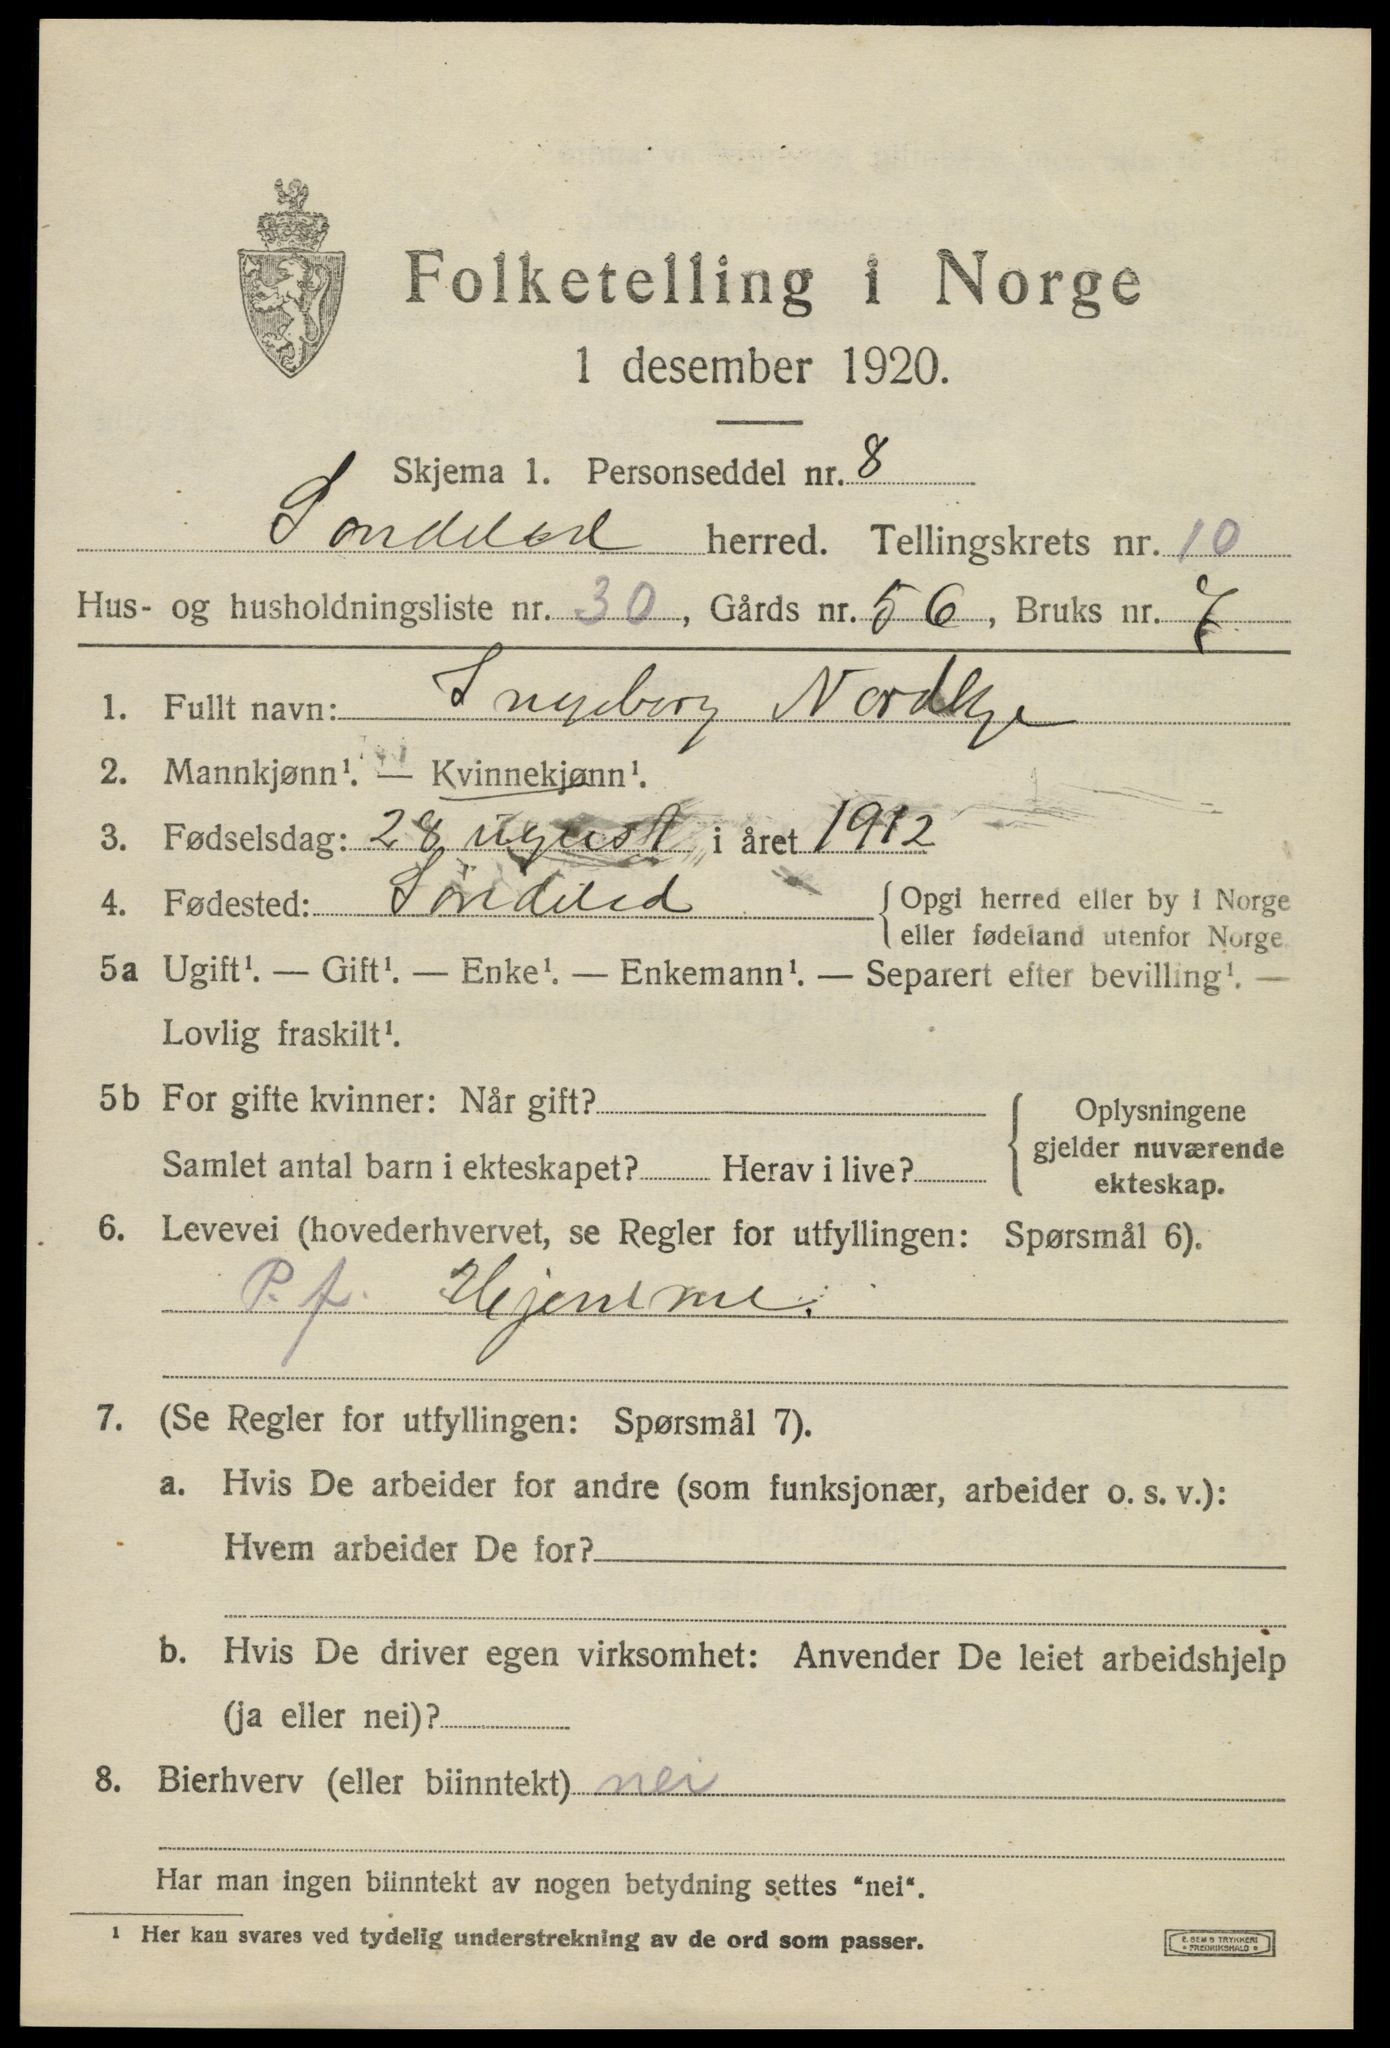 Folketelling i Norge
1 desember 1920.
Skjema 1. Personseddel nr. 8
Sondeled herred. Tellingskrets nr. 10
Hus- og husholdningsliste nr. 30, Gårds nr. 56, Bruks nr. 7
1. Fullt navn: Ingeborg
2. Mannkjønn¹. — Kvinnekjønn¹.
3. Fødselsdag: 28 ugust i året 1912
4. Fødested: Söndeled {Opgi herred eller by i Norge
eller fødeland utenfor Norge
5a Ugift¹. — Gift¹. — Enke¹. — Enkemann¹. — Separert efter bevilling¹. —
Lovlig fraskilt¹.
5b For gifte kvinner: Når gift?
Samlet antal barn i ekteskapet? Herav i live?
{Oplysningene
gjelder nuværende
ekteskap.
6. Levevei (hovederhvervet, se Regler for utfyllingen: Spørsmål 6).
P. f. Hjemme.
7. (Se Regler for utfyllingen: Spørsmål 7).
a. Hvis De arbeider for andre (som funksjonær, arbeider o. s. v.):
Hvem arbeider De for?
b. Hvis De driver egen virksomhet: Anvender De leiet arbeidshjelp
(ja eller nei)?
8. Bierhverv (eller biinntekt) nei
Har man ingen biinntekt av nogen betydning settes "nei".
¹ Her kan svares ved tydelig understrekning av de ord som passer.
E. SEM'S TRYKKERI
* FREDRIKSHALD *